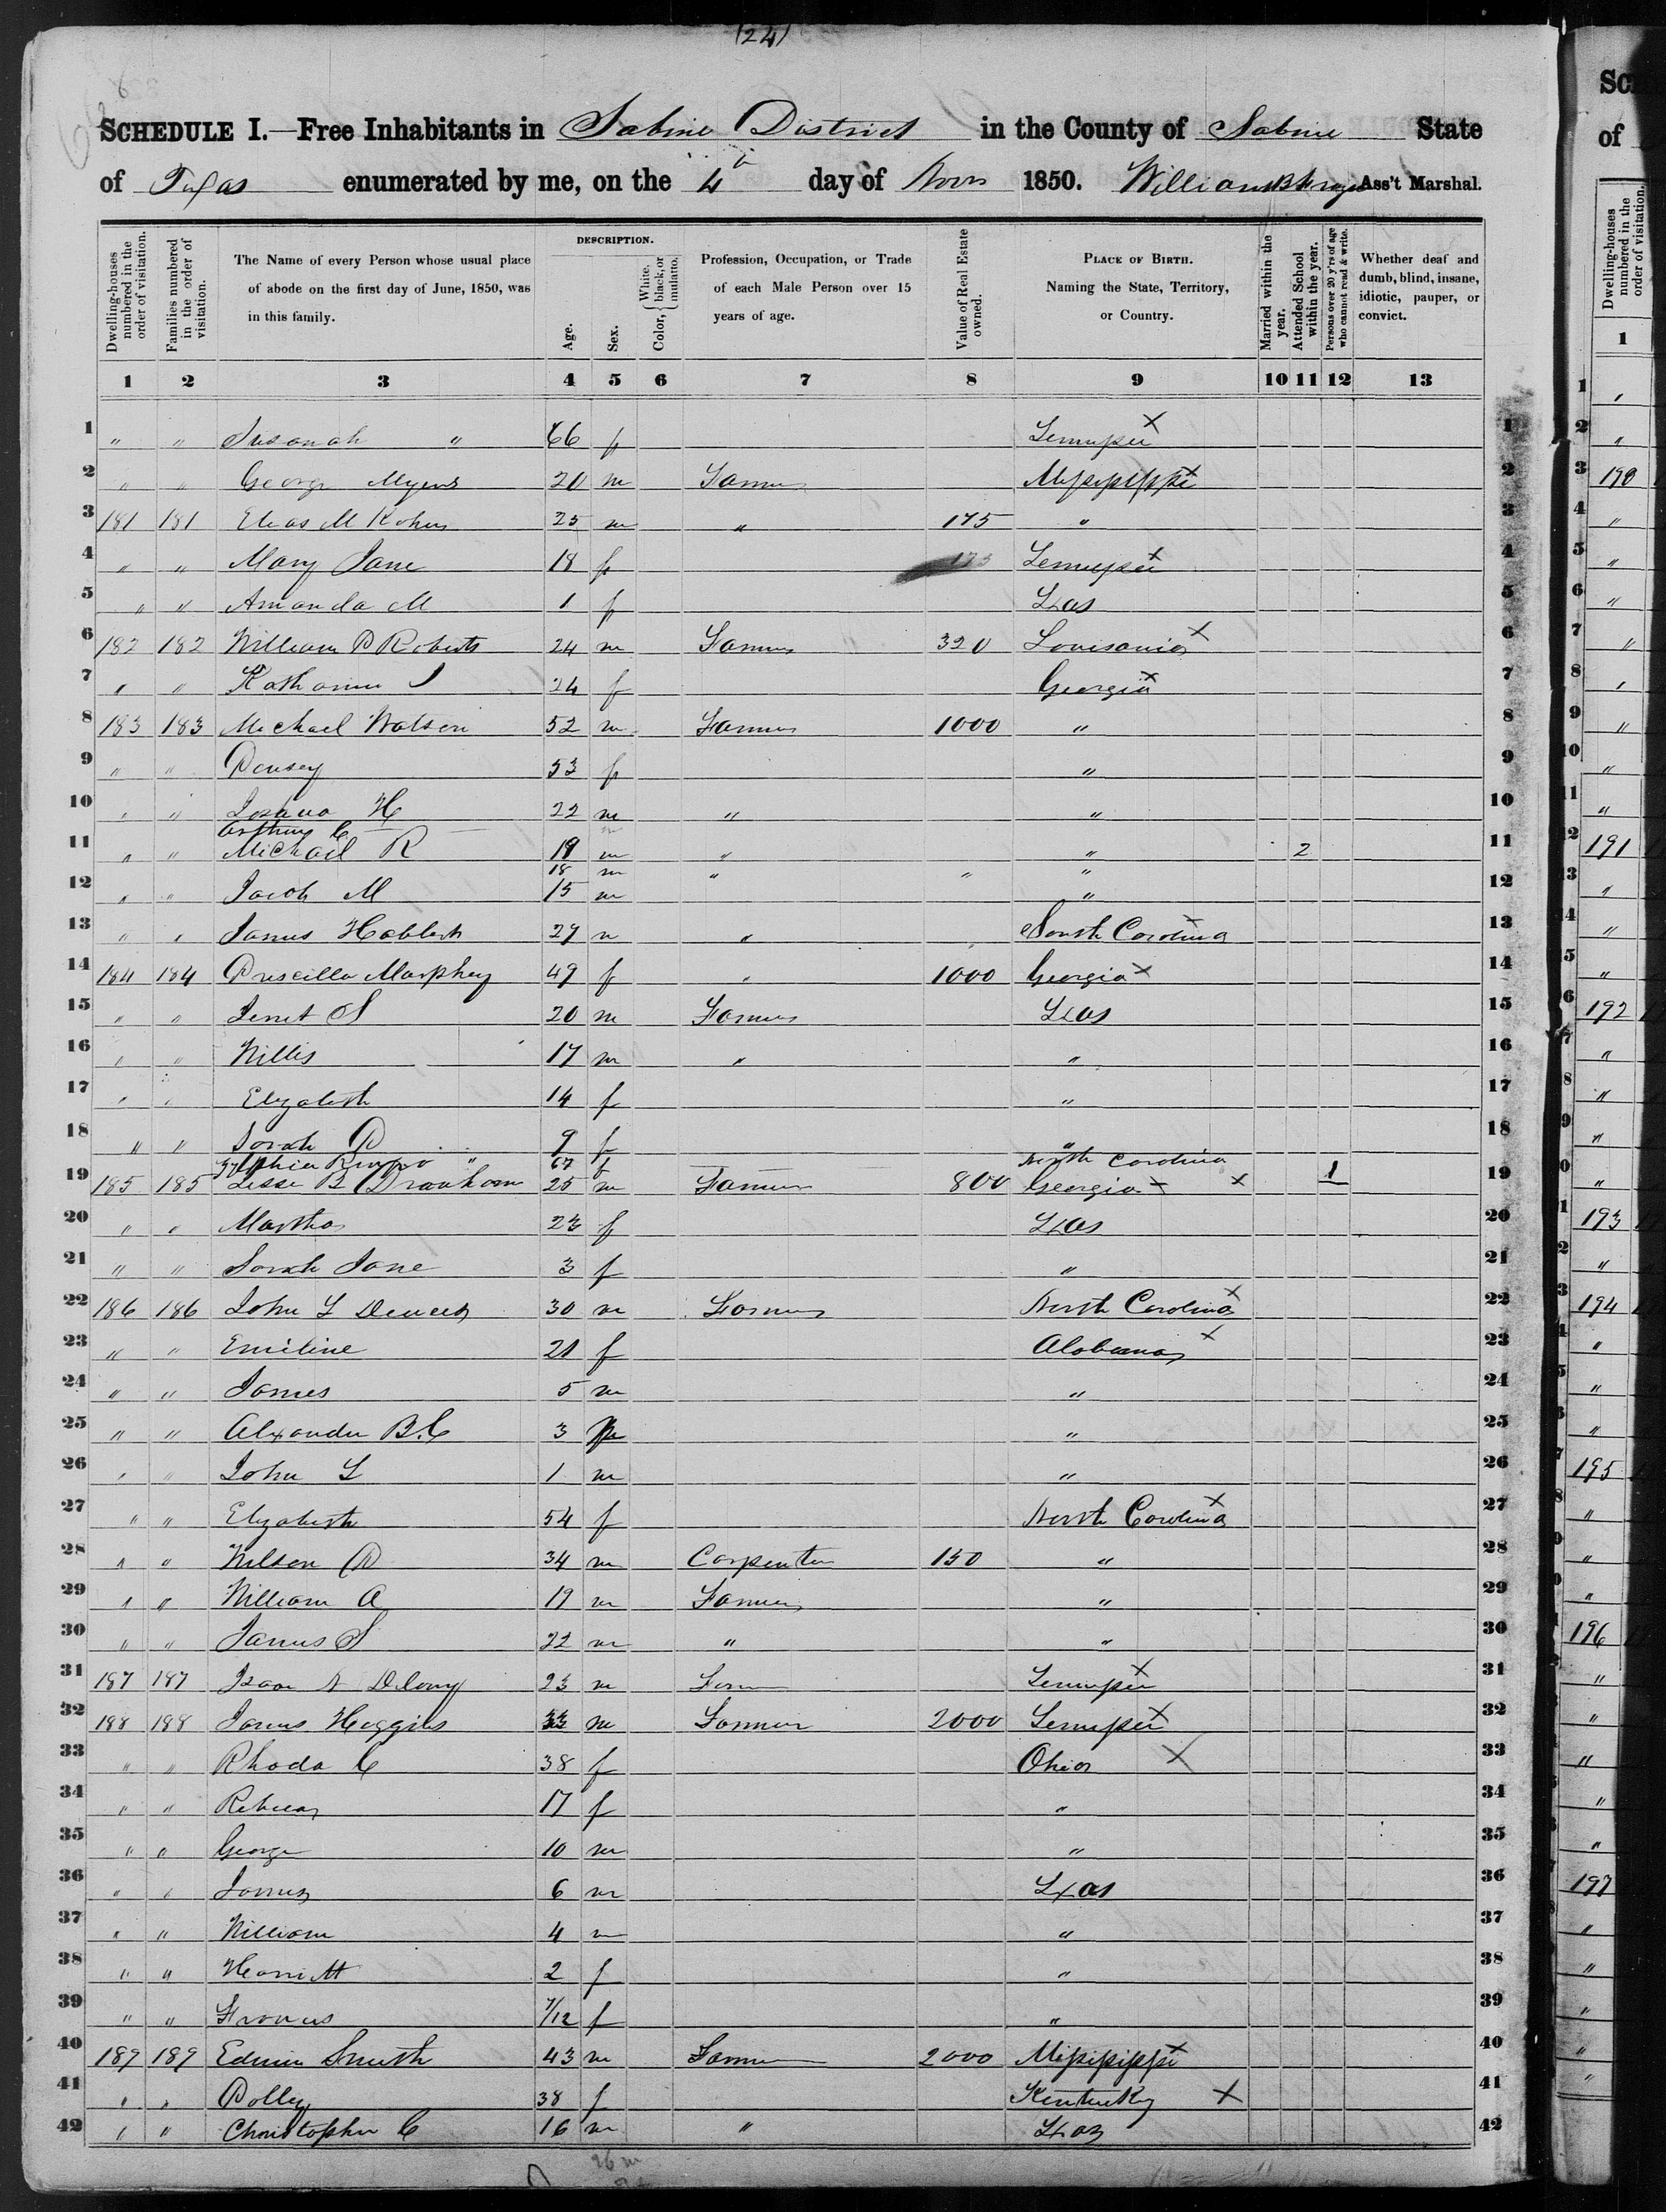 (24)
SCHEDULE I.—Free Inhabitants in Sabine District in the County of Sabine State
of Texas enumerated by me, on the 4th day of Novr 1850. William Ass't Marshal.
Dwelling-houses numbered in the order of visitation.
Families numbered in the order of visitation.
The Name of every Person whose usual place of abode on the first day of June, 1850, was in this family.
DESCRIPTION.
Age.
Sex.
Color, { White, black, or mulatto.
Profession, Occupation, or Trade of each Male Person over 15 years of age.
Value of Real Estate owned.
PLACE OF BIRTH. Naming the State, Territory, or Country.
Married within the year.
Attended School within the year.
Persons over 20 y'rs of age who cannot read & write.
Whether deaf and dumb, blind, insane, idiotic, pauper, or convict.
1 2 3 4 5 6 7 8 9 10 11 12 13
1 " " Susanah " 66 f Tennessee x 1
2 " " George Myers 20 m Farmer Mississippi x 2
3 181 181 Elias M 25 m " 175 " 3
4 " " Mary Jane 18 f 175 Tennessee x 4
5 " " Amanda M 1 f Txas 5
6 182 182 William P Roberts 24 m Farmer 320 Louisania x 6
7 " " Katharine S 24 f Georgia x 7
8 183 183 Michael Watson 52 m Farmer 1000 " 8
9 " " 53 f " 9
10 " " Joshua H 22 m " " 10
Arthur C
11 " " Michail R 19 m " " 2 11
18 m " " "
12 " " Jacob M 15 m " 12
13 " " James 29 m " South Carolina x 13
14 184 184 Priscilla Murphey 49 f " 1000 Georgia x 14
15 " " S 20 m Farmer Txas 15
16 " " Willis 17 m " " 16
17 " " Elizabeth 14 f " 17
18 " " Sarah P 9 f " 18
" 67 f North Carolina
19 185 185 Jesse B 25 m Farmer 800 Georgia x x 1 19
20 " " Martha 23 f Txas 20
21 " " Sarah Jane 3 f " 21
22 186 186 John L 30 m Farmer North Carolina x 22
23 " " Emiline 21 f Alabama x 23
24 " " James 5 m " 24
25 " " Alexander B. C 3 m " 25
26 " " John L 1 m " 26
27 " " Elizabeth 54 f North Carolina x 27
28 " " Wilson P 34 m Carpenter 150 " 28
29 " " William A 19 m Farmer " 29
30 " " James S 22 m " " 30
31 187 187 Isaac N Delany 23 m Farm Tennessee x 31
32 188 188 James Higgins 33 m Farmer 2000 Tennessee x 32
33 " " Rhoda C 38 f Ohio x 33
34 " " Rebecca 17 f " 34
35 " " George 10 m " 35
36 " " James 6 m Txas 36
37 " " William 4 m " 37
38 " " Harriett 2 f " 38
39 " " Frances 7/12 f " 39
40 189 189 Edwin Smith 43 m Farmer 2000 Mississippi x 40
41 " " Polley 38 f Kentucky x 41
42 " " Christopher C 16 m " Txas 42
26 m
Dwelling-houses numbered in the order of visitation.
1
190
191
192
193
194
195
196
197